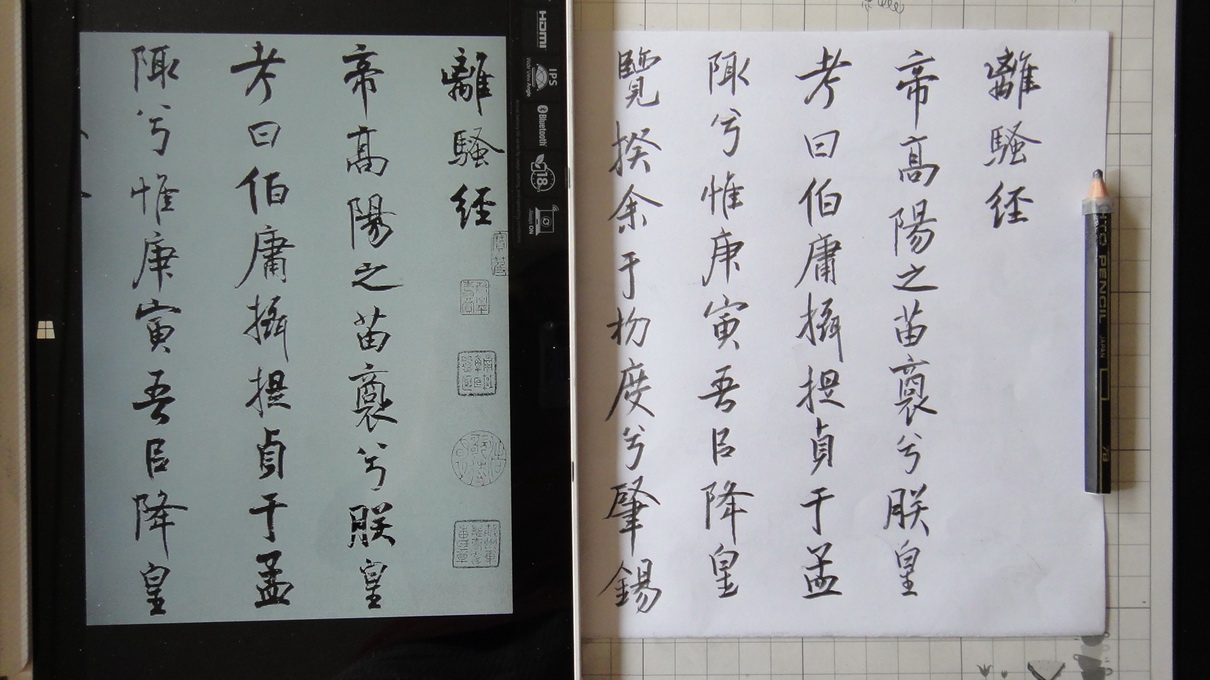 離騷經
帝高陽之苗裔兮朕皇
考曰伯庸攝提貞于孟
陬兮惟庚寅吾㠯降皇
HDMI
IPS
Bluetooth
18
離騷經
帝高陽之苗裔兮朕皇
考曰伯庸攝提貞于孟
陬兮惟庚寅吾㠯降皇
覽揆余于初度兮肇錫
PENCIL
JAPAN